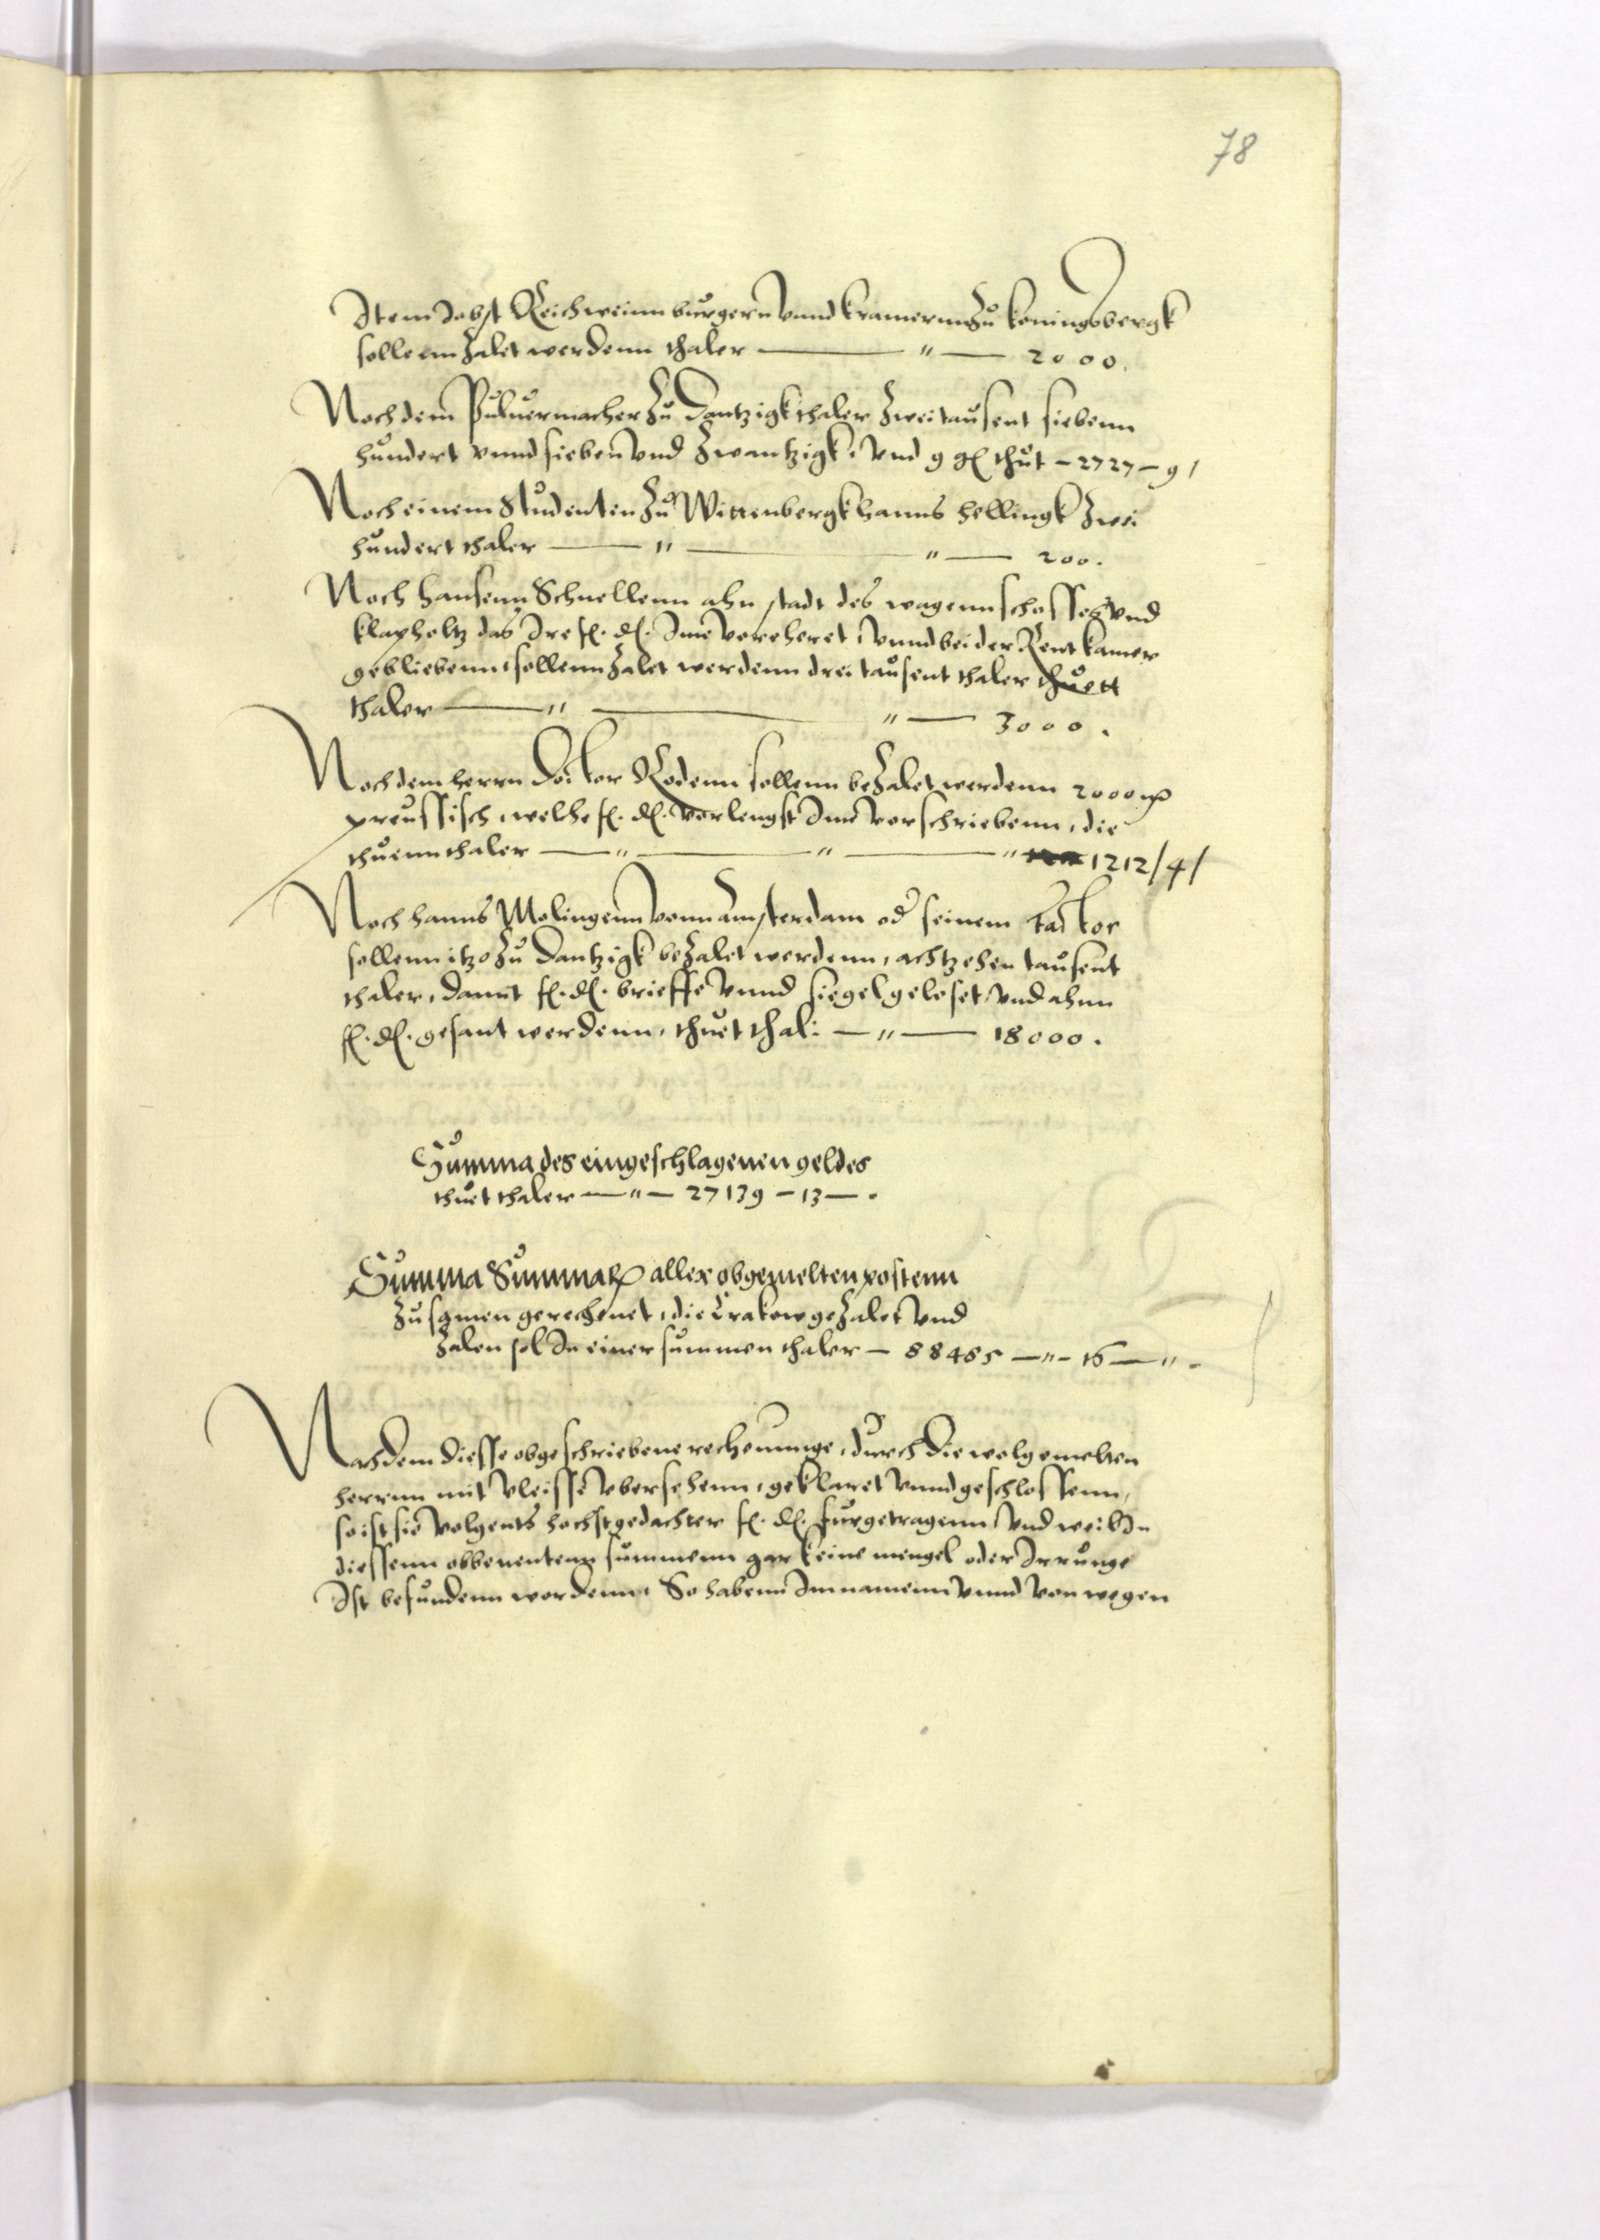 78
Item Jobst Reichweinn burgern vnnd kramernn zu koningsbergk
sollenn zalet werdenn thaler — " — 2000.
Noch dem Puluermacher zu Dantzigk thaler zwei tausent siebenn
hundert vnnd sieben vnd zwantzigk, vnd 9 gl thut – 2727 – 9 /
Noch einem Studenten zu Wittenbergk hanns hellingk zwei
hundert thaler — " — " — 200.
Noch hansenn Schnellenn ahn stadt des wagennschosses vnd
klapholtz das Jre f. d. Jme vorehret, vnnd bei der Rentkamer
gebliebenn, sollenn zalet werdenn drei tausent thaler thuett
thaler — " — " — 3000.
Noch dem herrn Doctor Rodenn sollenn bezalet werdenn 2000 mk
preussisch, welche f. d. vorlengst Jme vorschriebenn, die
thuenn thaler — " — " — " 1212/4/
Noch hanns Molingenn vonn amsterdam od seinem factor
sollenn itzo zu Dantzigk bezalet werdenn, achtzehen tausent
thaler, damit f. d. brieffe vnnd siegel geloset, vnd ahnn
f. d. gesant werdenn, thuet thal: — " — 18000.
Summa des eingeschlagenen geldes
thuet thaler — " — 27139 – 13 — .
Summa Summarum aller obgemelten postenn
zusamen gerechenet, die Crakow gezalet vnd
zalen sol In einer summen thaler – 88485 — " – 16 — " .
Nachdem diesse obgeschriebene rechenunge, durch die wolgemelten
herrnn mit vleisse vbersehenn, geklaret vnnd geschlossenn,
so ist sie volgents hochstgedachter f. d. furgetragenn, vnd weil Jn
diessenn obbenentenn summenn gar keine mengel oder Jrrunge
Ist befundenn wordenn, So habenn Jm namenn vnnd von wegen